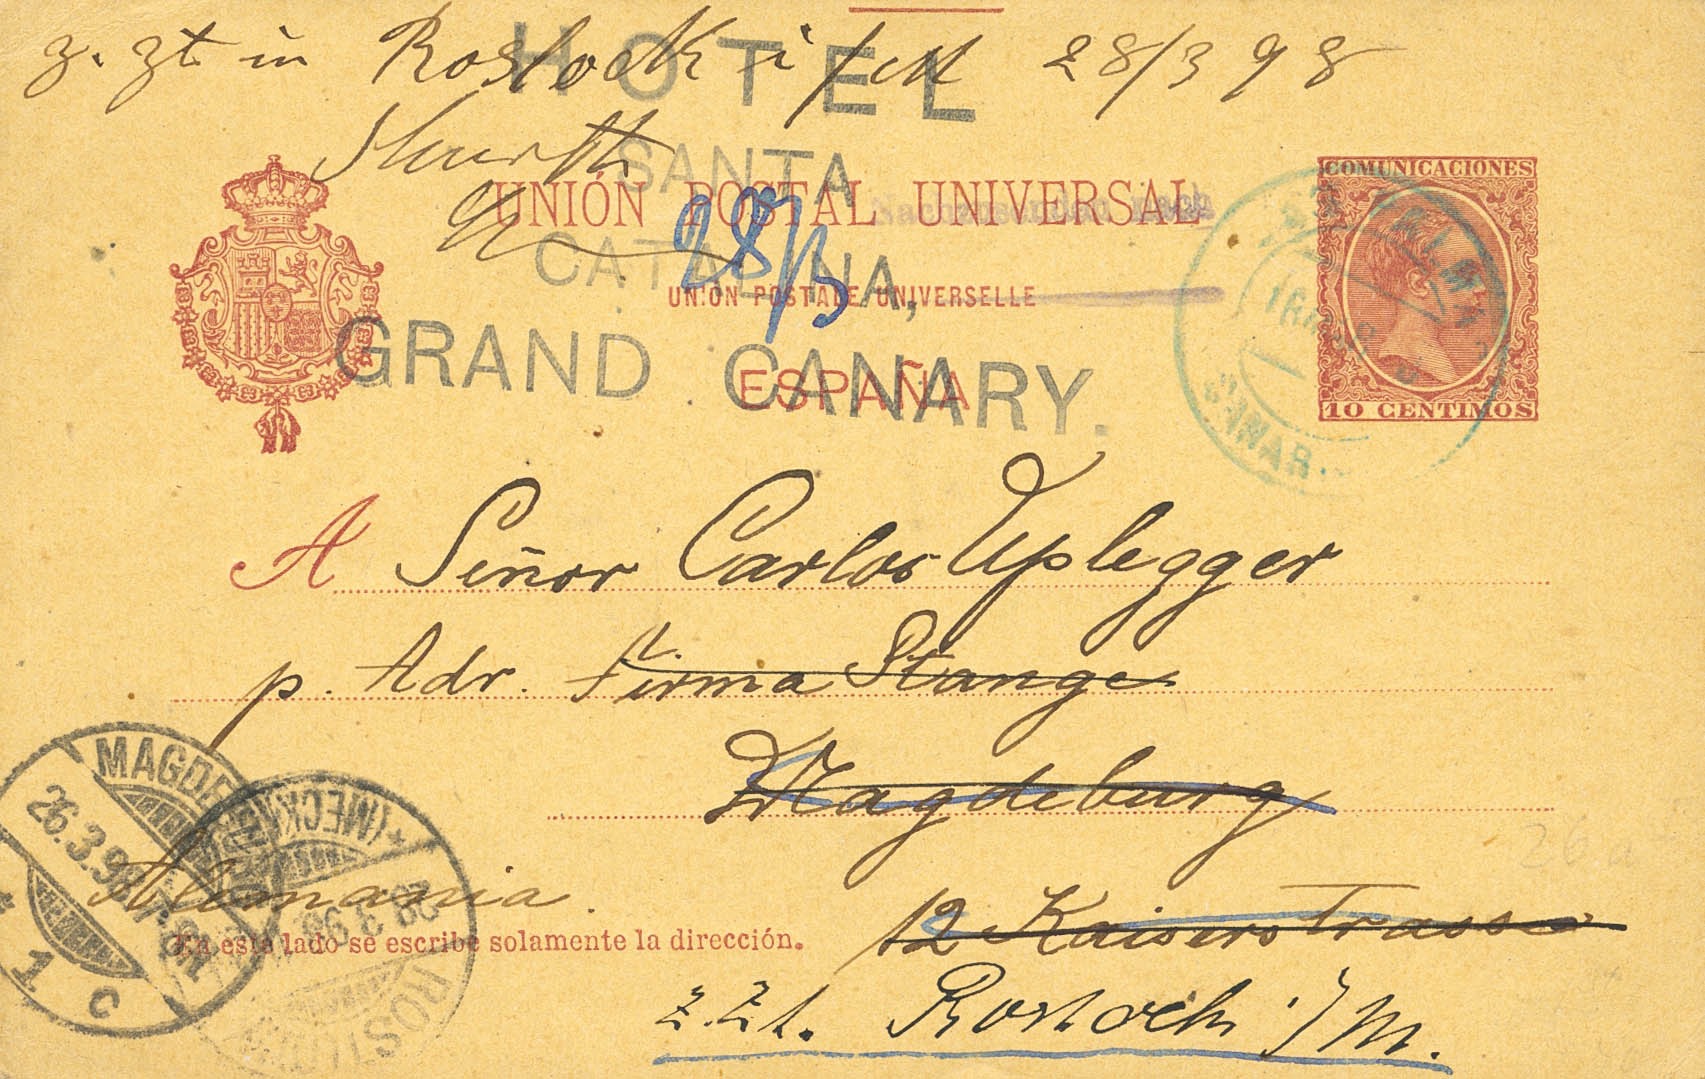 z. Zt. in Rostock i/M 28/3 98
HOTEL
SANTA
CATALINA,
GRAND CANARY.
UNIÓN POSTAL UNIVERSAL
Nachzusenden nach
28/3
UNION POSTALE UNIVERSELLE
ESPAÑA
COMUNICACIONES
10 CENTIMOS
A Señor Carlos Uplegger
p. Adr. Firma Stange
Magdeburg
Alemania.
12 Kaiserstrasse
z. Zt. Rostock i/M.
En este lado se escribe solamente la dirección.
MAGDEBURG
26.3.98
1 c
ROSTOCK
(MECKLB)